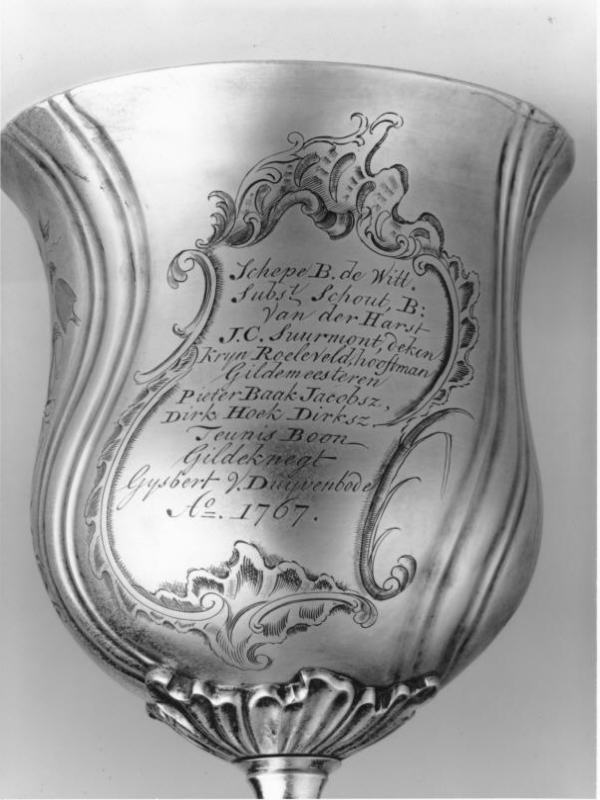 Schepe B. de Witt.
Subst. Schout, B:
van der Harst
J.C. Suurmont, deken
Kryn Roeleveld, hooftman
Gildemeesteren
Pieter Baak Jacobsz,
Dirk Hoek Dirksz
Teunis Boon
Gildeknegt
Gysbert V. Duyvenbode
Ao. 1767.